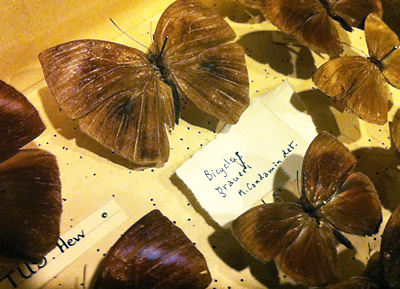 Bicyclus
graueri
M. Condamin det.
TUS Hew